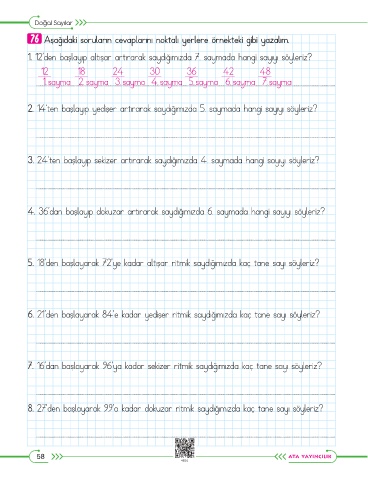 Doğal Sayılar
76 Aşağıdaki soruların cevaplarını noktalı yerlere örnekteki gibi yazalım.
1. 12'den başlayıp altışar artırarak saydığımızda 7. saymada hangi sayıyı söyleriz?
12 18 24 30 36 42 48
1.sayma 2.sayma 3.sayma 4.sayma 5.sayma 6.sayma 7.sayma
2. 14'ten başlayıp yedişer artırarak saydığımızda 5. saymada hangi sayıyı söyleriz?
3. 24'ten başlayıp sekizer artırarak saydığımızda 4. saymada hangi sayıyı söyleriz?
4. 36'dan başlayıp dokuzar artırarak saydığımızda 6. saymada hangi sayıyı söyleriz?
5. 18'den başlayarak 72'ye kadar altışar ritmik saydığımızda kaç tane sayı söyleriz?
6. 21'den başlayarak 84'e kadar yedişer ritmik saydığımızda kaç tane sayı söyleriz?
7. 16'dan başlayarak 96'ya kadar sekizer ritmik saydığımızda kaç tane sayı söyleriz?
8. 27'den başlayarak 99'a kadar dokuzar ritmik saydığımızda kaç tane sayı söyleriz?
58
ATA YAYINCILIK